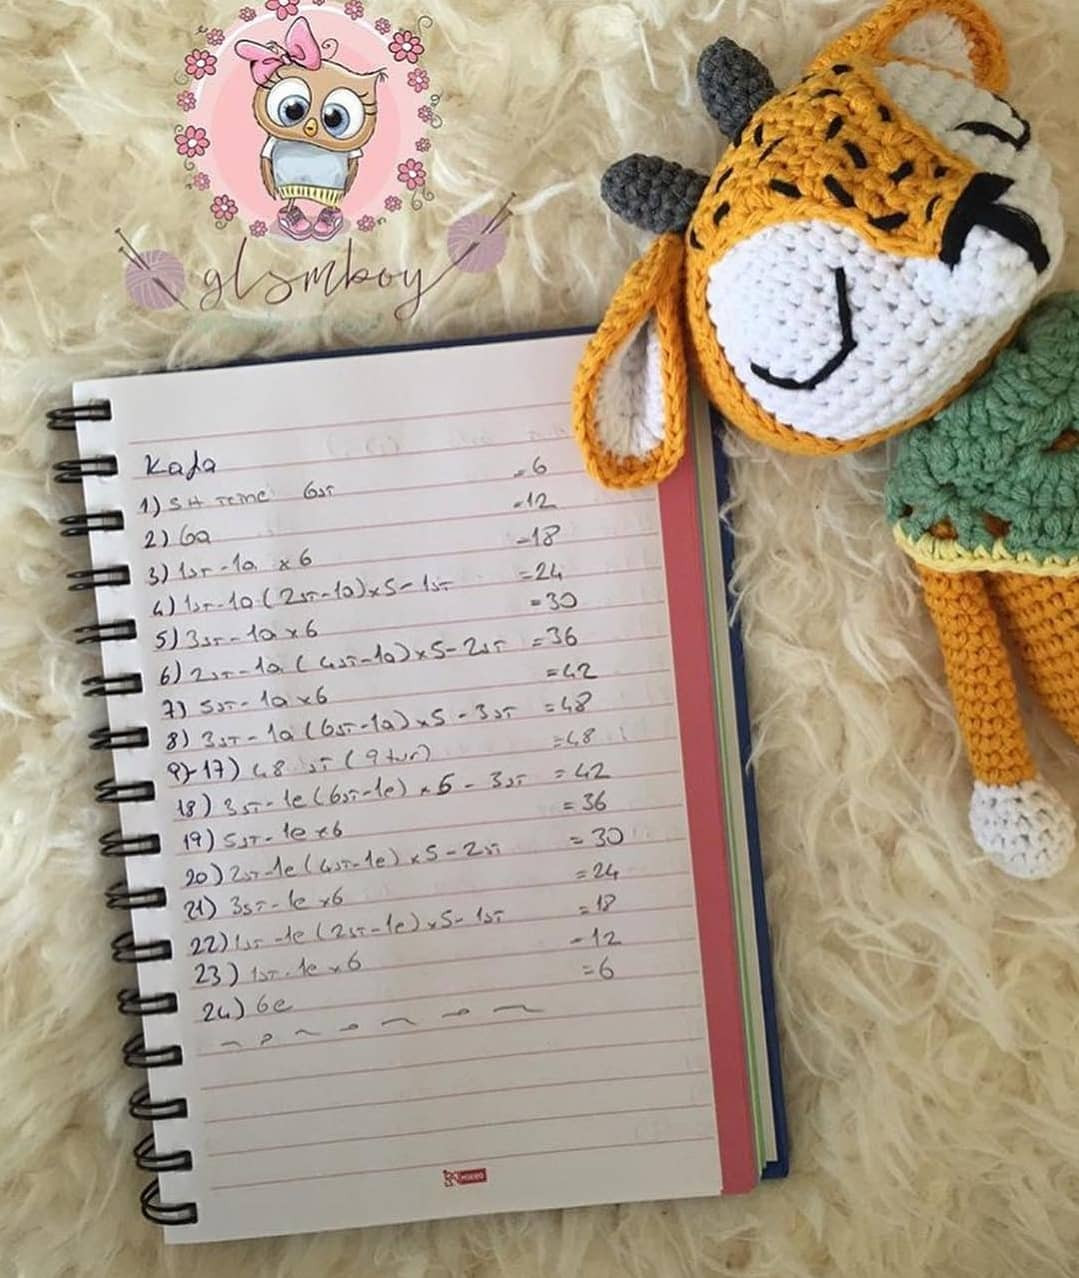 glsmboy
Kafa
1) SH içine 6sx =6
2) 6a =12
3) 1sx-1a x6 =18
4) 1sx-1a (2sx-1a)x5-1sx =24
5) 3sx-1a x6 =30
6) 2sx-1a (4sx-1a)x5-2sx =36
7) 5sx-1a x6 =42
8) 3sx-1a (6sx-1a)x5-3sx =48
9)-17) 48 sx (9 tur) =48
18) 3sx-1e (6sx-1e) x5-3sx =42
19) 5sx-1e x6 =36
20) 2sx-1e (4sx-1e) x5-2sx =30
21) 3sx-1e x6 =24
22) 1sx-1e (2sx-1e)x5-1sx =18
23) 1sx-1e x6 =12
24) 6e =6